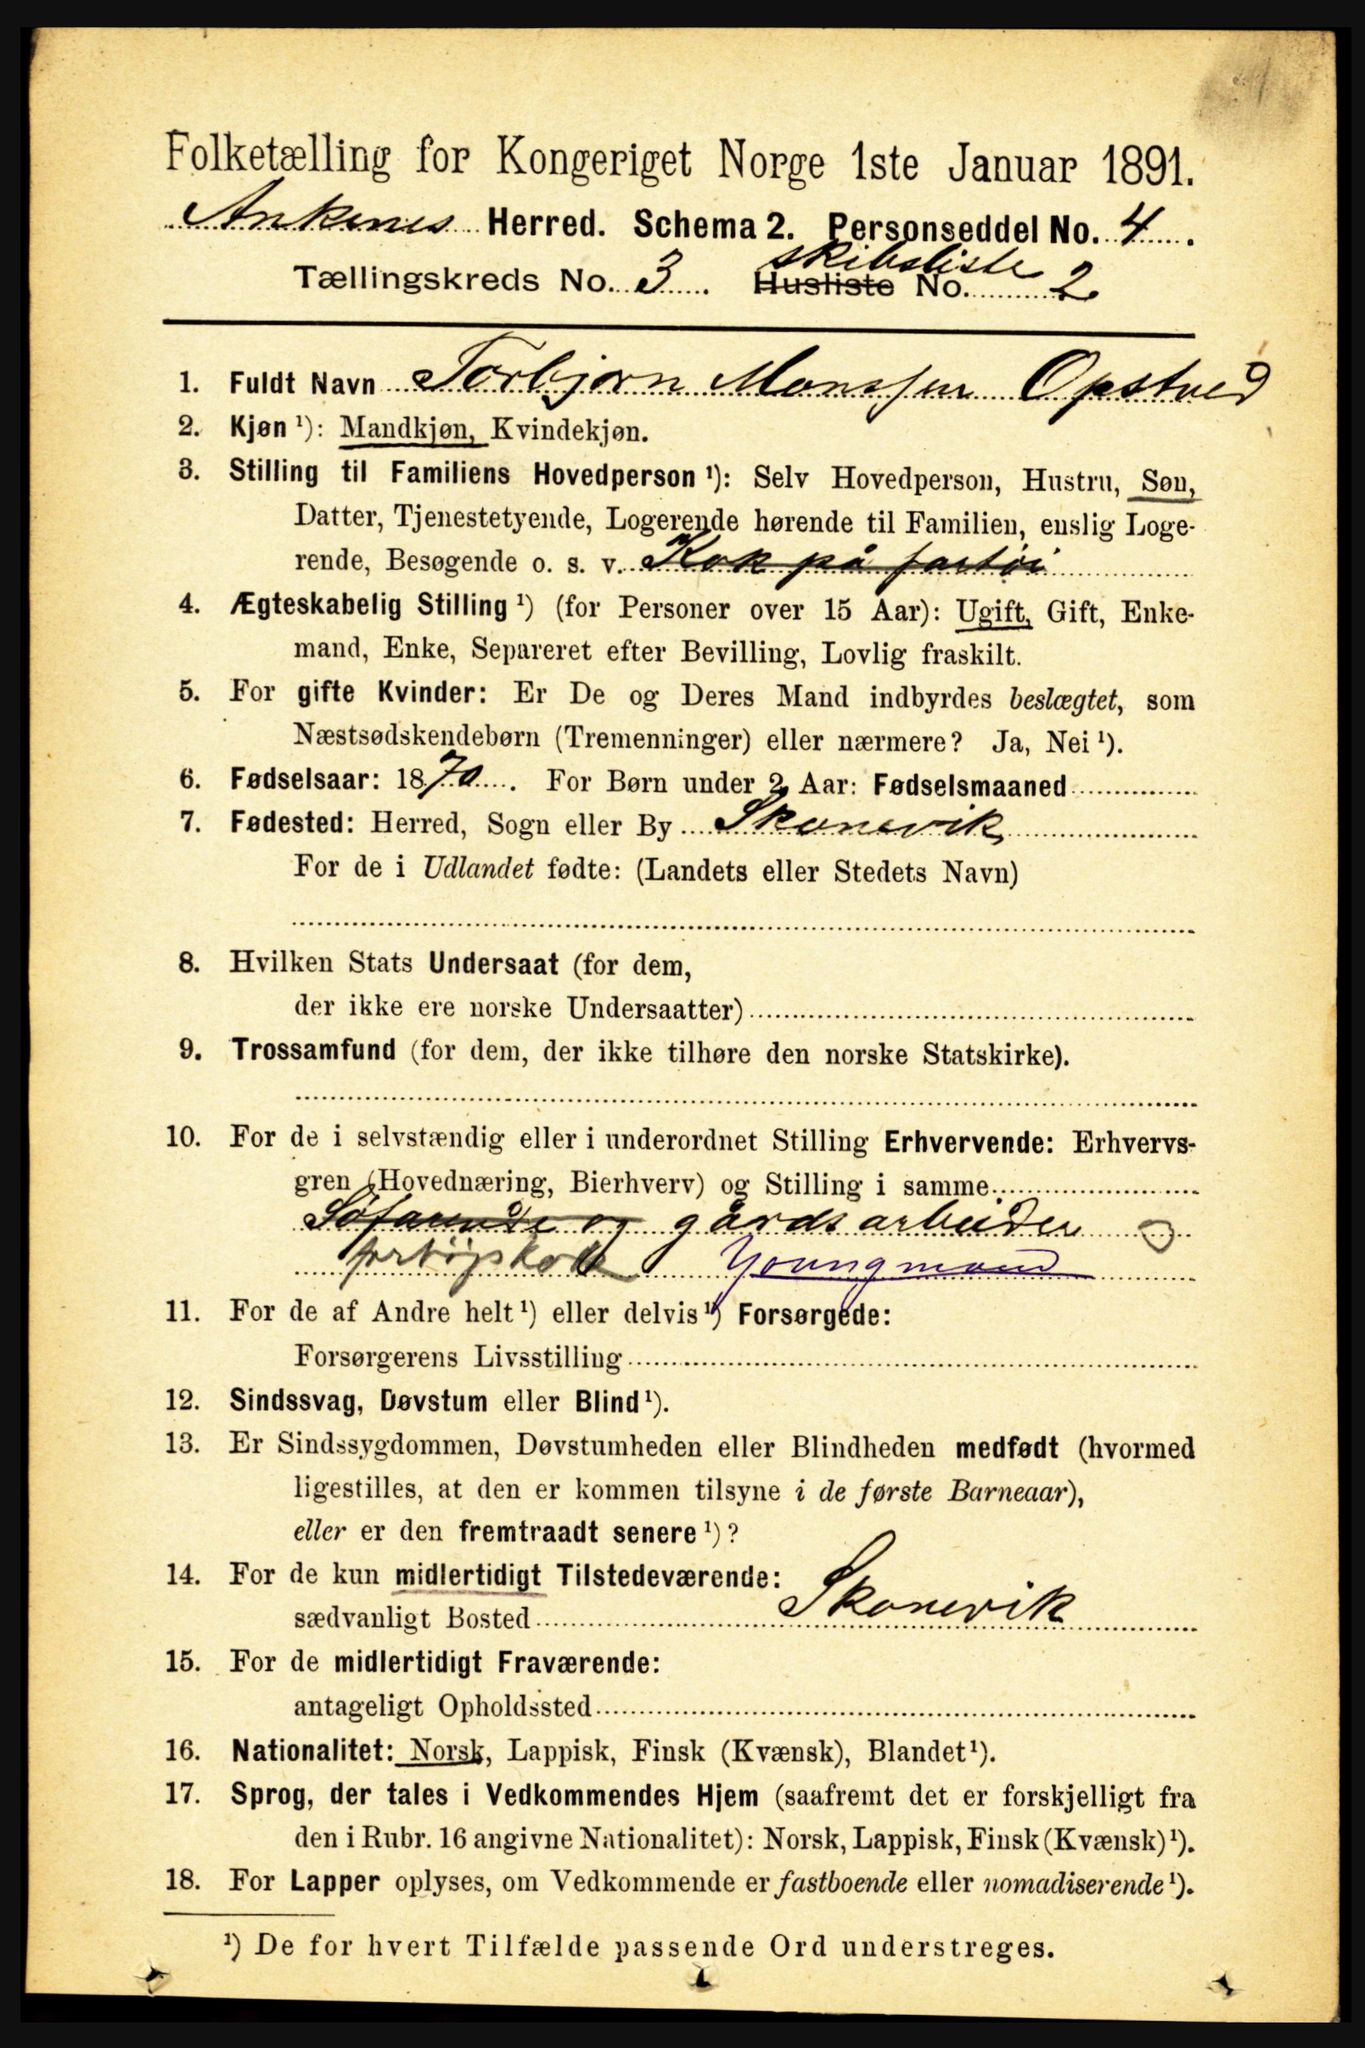 Folketælling for Kongeriget Norge 1ste Januar 1891.
Ankenes Herred. Schema 2. Personseddel No. 4.
skibsliste
Tællingskreds No. 3. Husliste No. 2
1. Fuldt Navn Torbjørn Monssen Opstved
2. Kjøn ¹): Mandkjøn, Kvindekjøn.
3. Stilling til Familiens Hovedperson ¹): Selv Hovedperson, Hustru, Søn,
Datter, Tjenestetyende, Logerende hørende til Familien, enslig Loge-
rende, Besøgende o. s. v. Kok på fartøi
4. Ægteskabelig Stilling ¹) (for Personer over 15 Aar): Ugift, Gift, Enke-
mand, Enke, Separeret efter Bevilling, Lovlig fraskilt.
5. For gifte Kvinder: Er De og Deres Mand indbyrdes beslægtet, som
Næstsødskendebørn (Tremenninger) eller nærmere? Ja, Nei ¹).
6. Fødselsaar: 1870. For Børn under 2 Aar: Fødselsmaaned
7. Fødested: Herred, Sogn eller By Skonevik
For de i Udlandet fødte: (Landets eller Stedets Navn)
8. Hvilken Stats Undersaat (for dem,
der ikke ere norske Undersaatter)
9. Trossamfund (for dem, der ikke tilhøre den norske Statskirke).
10. For de i selvstændig eller i underordnet Stilling Erhvervende: Erhvervs-
gren (Hovednæring, Bierhverv) og Stilling i samme
Søfarende og gårdsarbeider
fartøjskok Youngmand
11. For de af Andre helt ¹) eller delvis ¹) Forsørgede:
Forsørgerens Livsstilling
12. Sindssvag, Døvstum eller Blind ¹).
13. Er Sindssygdommen, Døvstumheden eller Blindheden medfødt (hvormed
ligestilles, at den er kommen tilsyne i de første Barneaar),
eller er den fremtraadt senere ¹)?
14. For de kun midlertidigt Tilstedeværende:
sædvanligt Bosted Skonevik
15. For de midlertidigt Fraværende:
antageligt Opholdssted
16. Nationalitet: Norsk, Lappisk, Finsk (Kvænsk), Blandet ¹).
17. Sprog, der tales i Vedkommendes Hjem (saafremt det er forskjelligt fra
den i Rubr. 16 angivne Nationalitet): Norsk, Lappisk, Finsk (Kvænsk) ¹).
18. For Lapper oplyses, om Vedkommende er fastboende eller nomadiserende ¹).
¹) De for hvert Tilfælde passende Ord understreges.